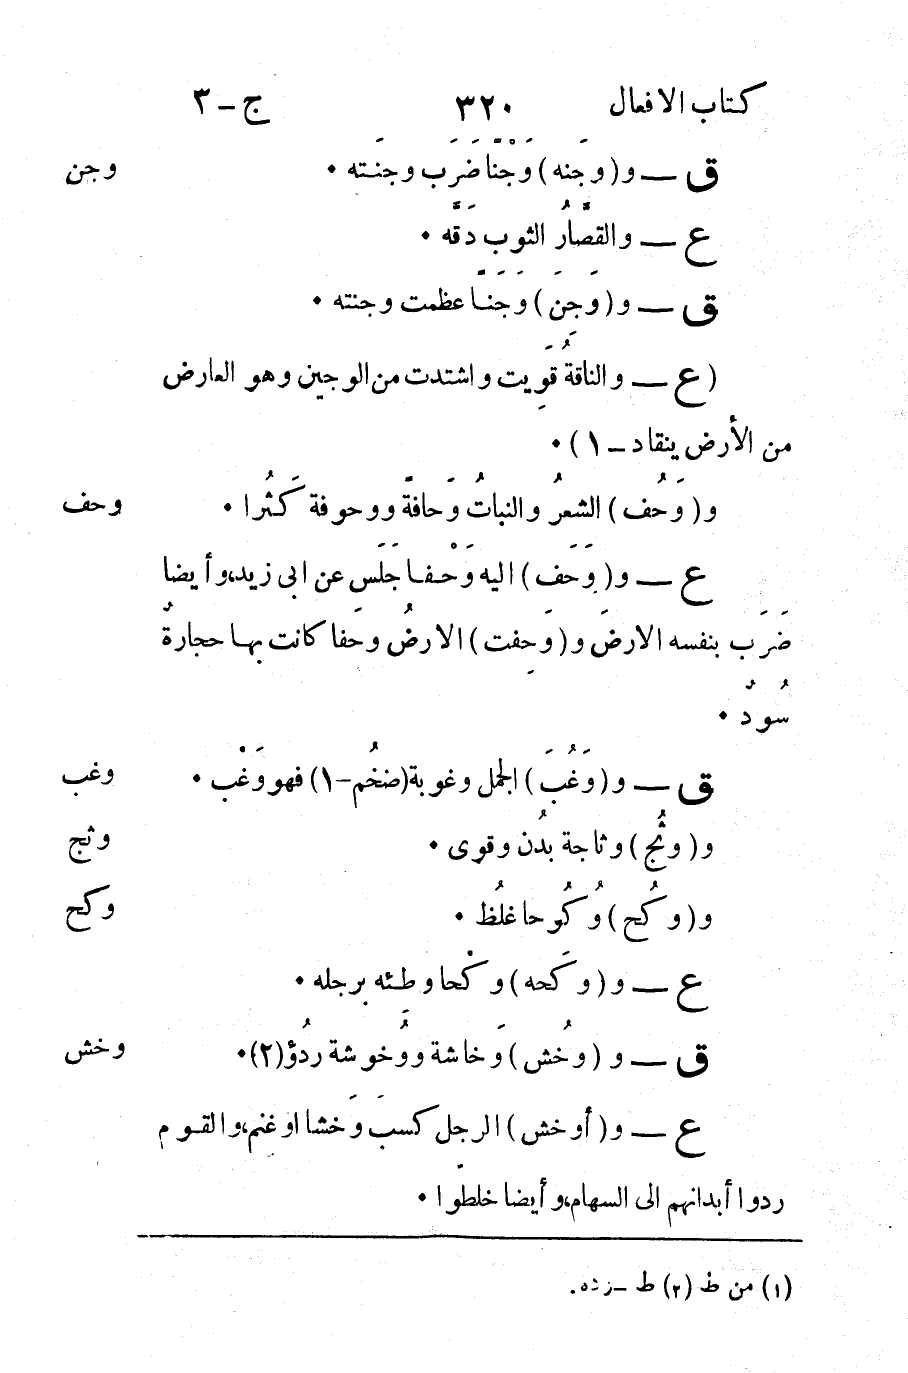 كتاب الافعال ٣٢٠ ج - ٣
ق — و (وَجَنه) وَجْنًا ضَرَب وجنَته • وجن
ع — والقصَّارُ الثوب دَقَّه •
ق — و (وَجِنَ) وَجَنًا عظمت وجنته •
(ع — والناقةُ قَوِيت واشتدت من الوجين وهو العارض
من الأرض ينقاد - ١) •
و (وَحُف) الشعرُ والنباتُ وَحافةً ووحوفة كَثُرا • وحف
ع — و (وَحَف) اليه وَحْفا جَلَس عن ابى زيد، وأيضا
ضَرَب بنفسه الارضَ و (وَحِفت) الارضُ وحَفا كانت بها حجارةٌ
سُودٌ •
ق — و (وَغُبَ) الجملُ وغوبة (ضخُم - ١) فهو وَغْب • وغب
و (وثُج) وثاجة بدُن وقوى • وثج
و (وكُح) وُكُوحا غلُظ • وكح
ع — و (وكَحه) وكْحا وطِئه برجله •
ق — و (وخُش) وَخاشة ووُخوشة ردُؤ (٢) • وخش
ع — و (أوخش) الرجل كسَب وَخشا او غنم، والقوم
ردوا أبدانهم الى السهام، وأيضا خلطوا •
(١) من ط (٢) ط - رذه.